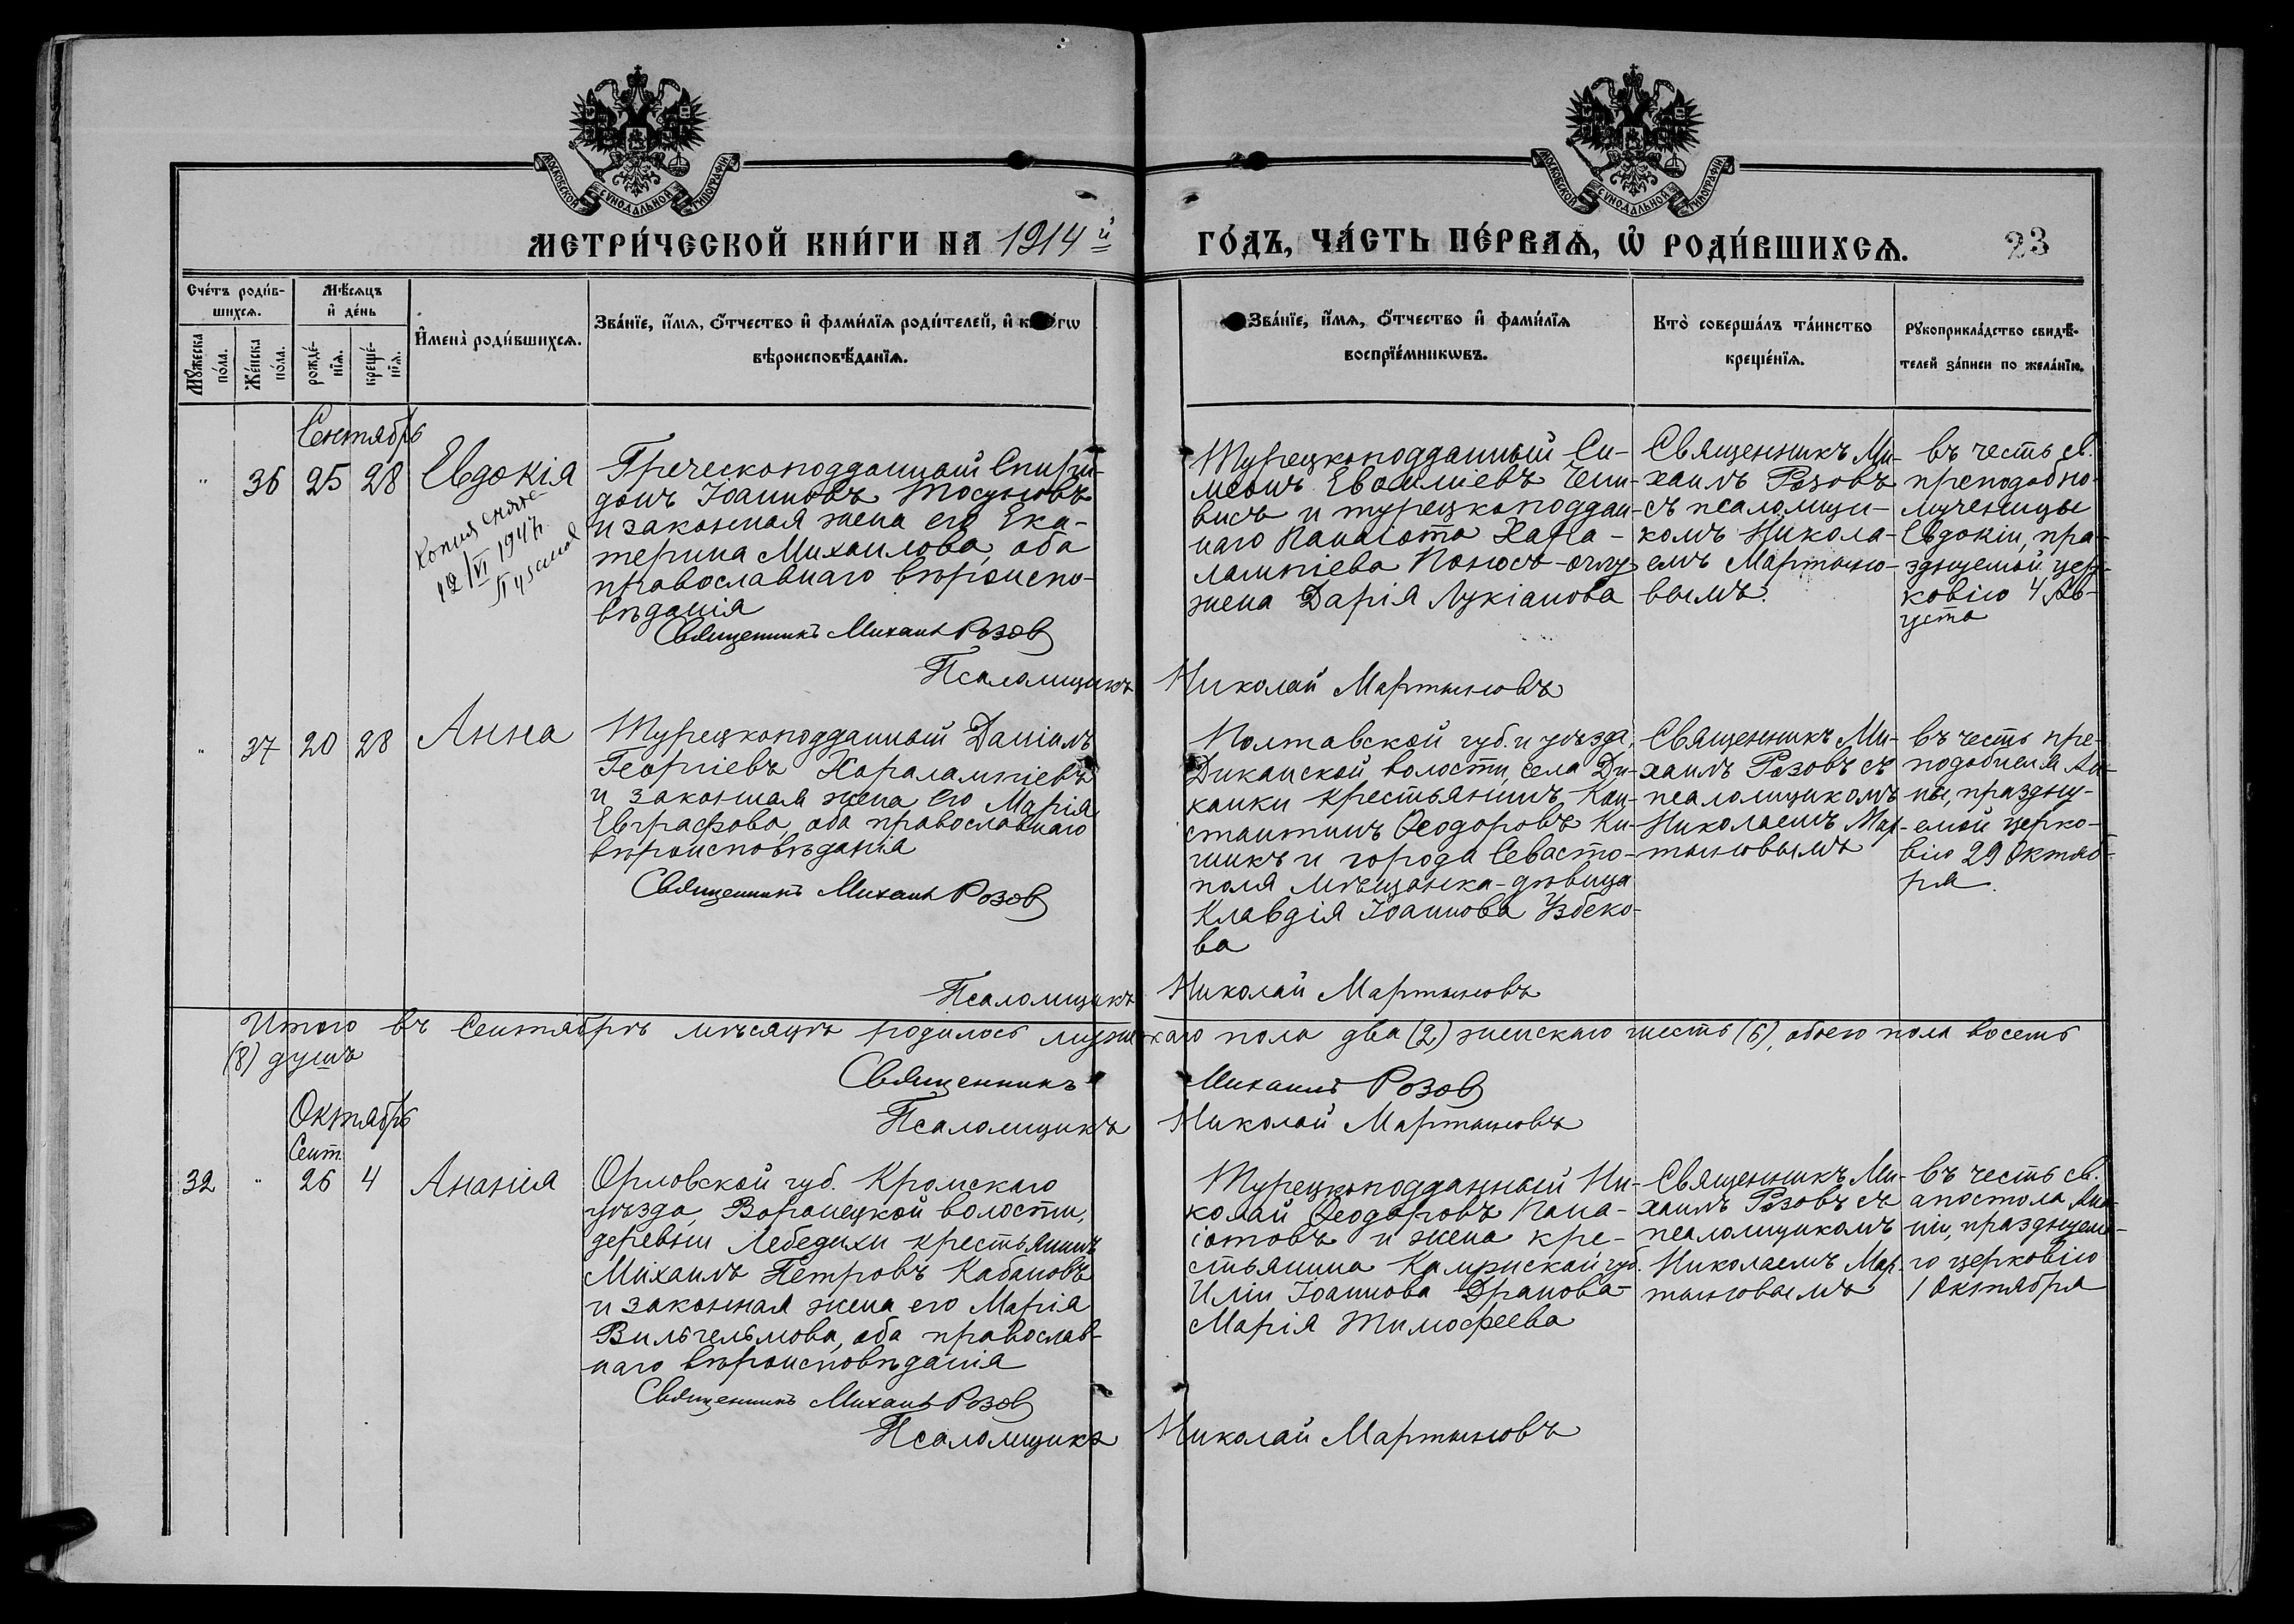 МОСКОВСКОЙ СУНОДАЛЬНОЙ ТИПОГРАФІИ
МОСКОВСКОЙ СУНОДАЛЬНОЙ ТИПОГРАФІИ
МЕТРИ́ЧЕСКОЙ КНИ́ГИ НА 1914й
ГО́ДЪ, ЧА́СТЬ ПЕ́РВАѦ, Ѿ РОДИ́ВШИХСѦ.
23
Сче́тъ роди́в-
шихсѧ.
Мꙋ́жеска
по́ла.
Же́нска
по́ла.
Мѣ́сѧцъ
и҆ де́нь
рожде́-
нїѧ.
креще́-
нїѧ.
И҆мена̀ роди́вшихсѧ.
Зва́нїе, и҆́мѧ, ѻ҆́тчество и҆ фами́лїѧ роди́телей, и҆
вѣроисповѣ́данїѧ.
Зва́нїе, и҆́мѧ, ѻ҆́тчество и҆ фами́лїѧ
воспрїе́мникѡвъ.
Кто̀ соверша́лъ та́инство
креще́нїѧ.
Рꙋкоприкла́дство свидѣ́-
телей за́писи по жела́нїю.
Сентябрь
" 36 25 28
Евдокія
Копия снята
12/VI 194
Греческоподданный Спири-
донъ Іоанновъ Тосуновъ
и законная жена его Ека-
терина Михаилова, оба
православнаго вѣроиспо-
вѣданія
Священникъ Михаилъ Розов
Псаломщикъ Николай Мартыновъ
Турецкоподданный Си-
меонъ Евѳиміевъ
висъ и турецкоподдан-
наго Панаіота Хара-
лампіева оглу
жена Дарія Лукіанова
Священникъ Ми-
хаилъ Розовъ
съ псаломщи-
комъ Никола-
емъ Мартыно-
вымъ.
въ честь св.
преподобно-
мученицы
Евдокіи, пра-
зднуемой цер-
ковію 4 Ав-
густа
" 37 20 28
Анна
Турецкоподданный Даніилъ
Георгіевъ Харалампіевъ
и законная жена его Марія
Евграфова, оба православнаго
вѣроисповѣданія
Священникъ Михаилъ Розов
Псаломщикъ Николай Мартыновъ
Полтавской губ. и уѣзда,
Диканской волости, села Ди-
канки крестьянинъ Кон-
стантинъ Ѳеодоровъ Ки-
шикъ и города Севасто-
поля мѣщанка-дѣвица
Клавдія Іоаннова Узбеко-
ва
Священникъ Ми-
хаилъ Розовъ съ
псаломщикомъ
Николаемъ Мар-
тыновымъ
въ честь пре-
подобныя Ан-
ны, праздну-
емой церко-
вію 29 Октяб-
ря.
Итого въ Сентябрѣ мѣсяцѣ родилось мужескаго пола два (2) женскаго шесть (6), обоего пола восемь
(8) душъ
Священникъ Михаилъ Розов
Псаломщикъ Николай Мартыновъ
Октябрь
Сент.
32 " 26 4
Ананія
Орловской губ. Кромскаго
уѣзда, Воронецкой волости,
деревни Лебедихи крестьянинъ
Михаилъ Петровъ Кабановъ
и законная жена его Марія
Вильгельмова, оба православ-
наго вѣроисповѣданія
Священникъ Михаилъ Розов
Псаломщикъ Николай Мартыновъ
Турецкоподданный Ни-
колай Ѳеодоровъ Пана-
іотовъ и жена кре-
стьянина Калужской губ.
Иліи Іоаннова
Марія Тимоѳеева
Священникъ Ми-
хаилъ Розовъ съ
псаломщикомъ
Николаемъ Мар-
тыновымъ
въ честь св.
апостола Ана-
ніи, празднуемо-
го церковію
1 Октября